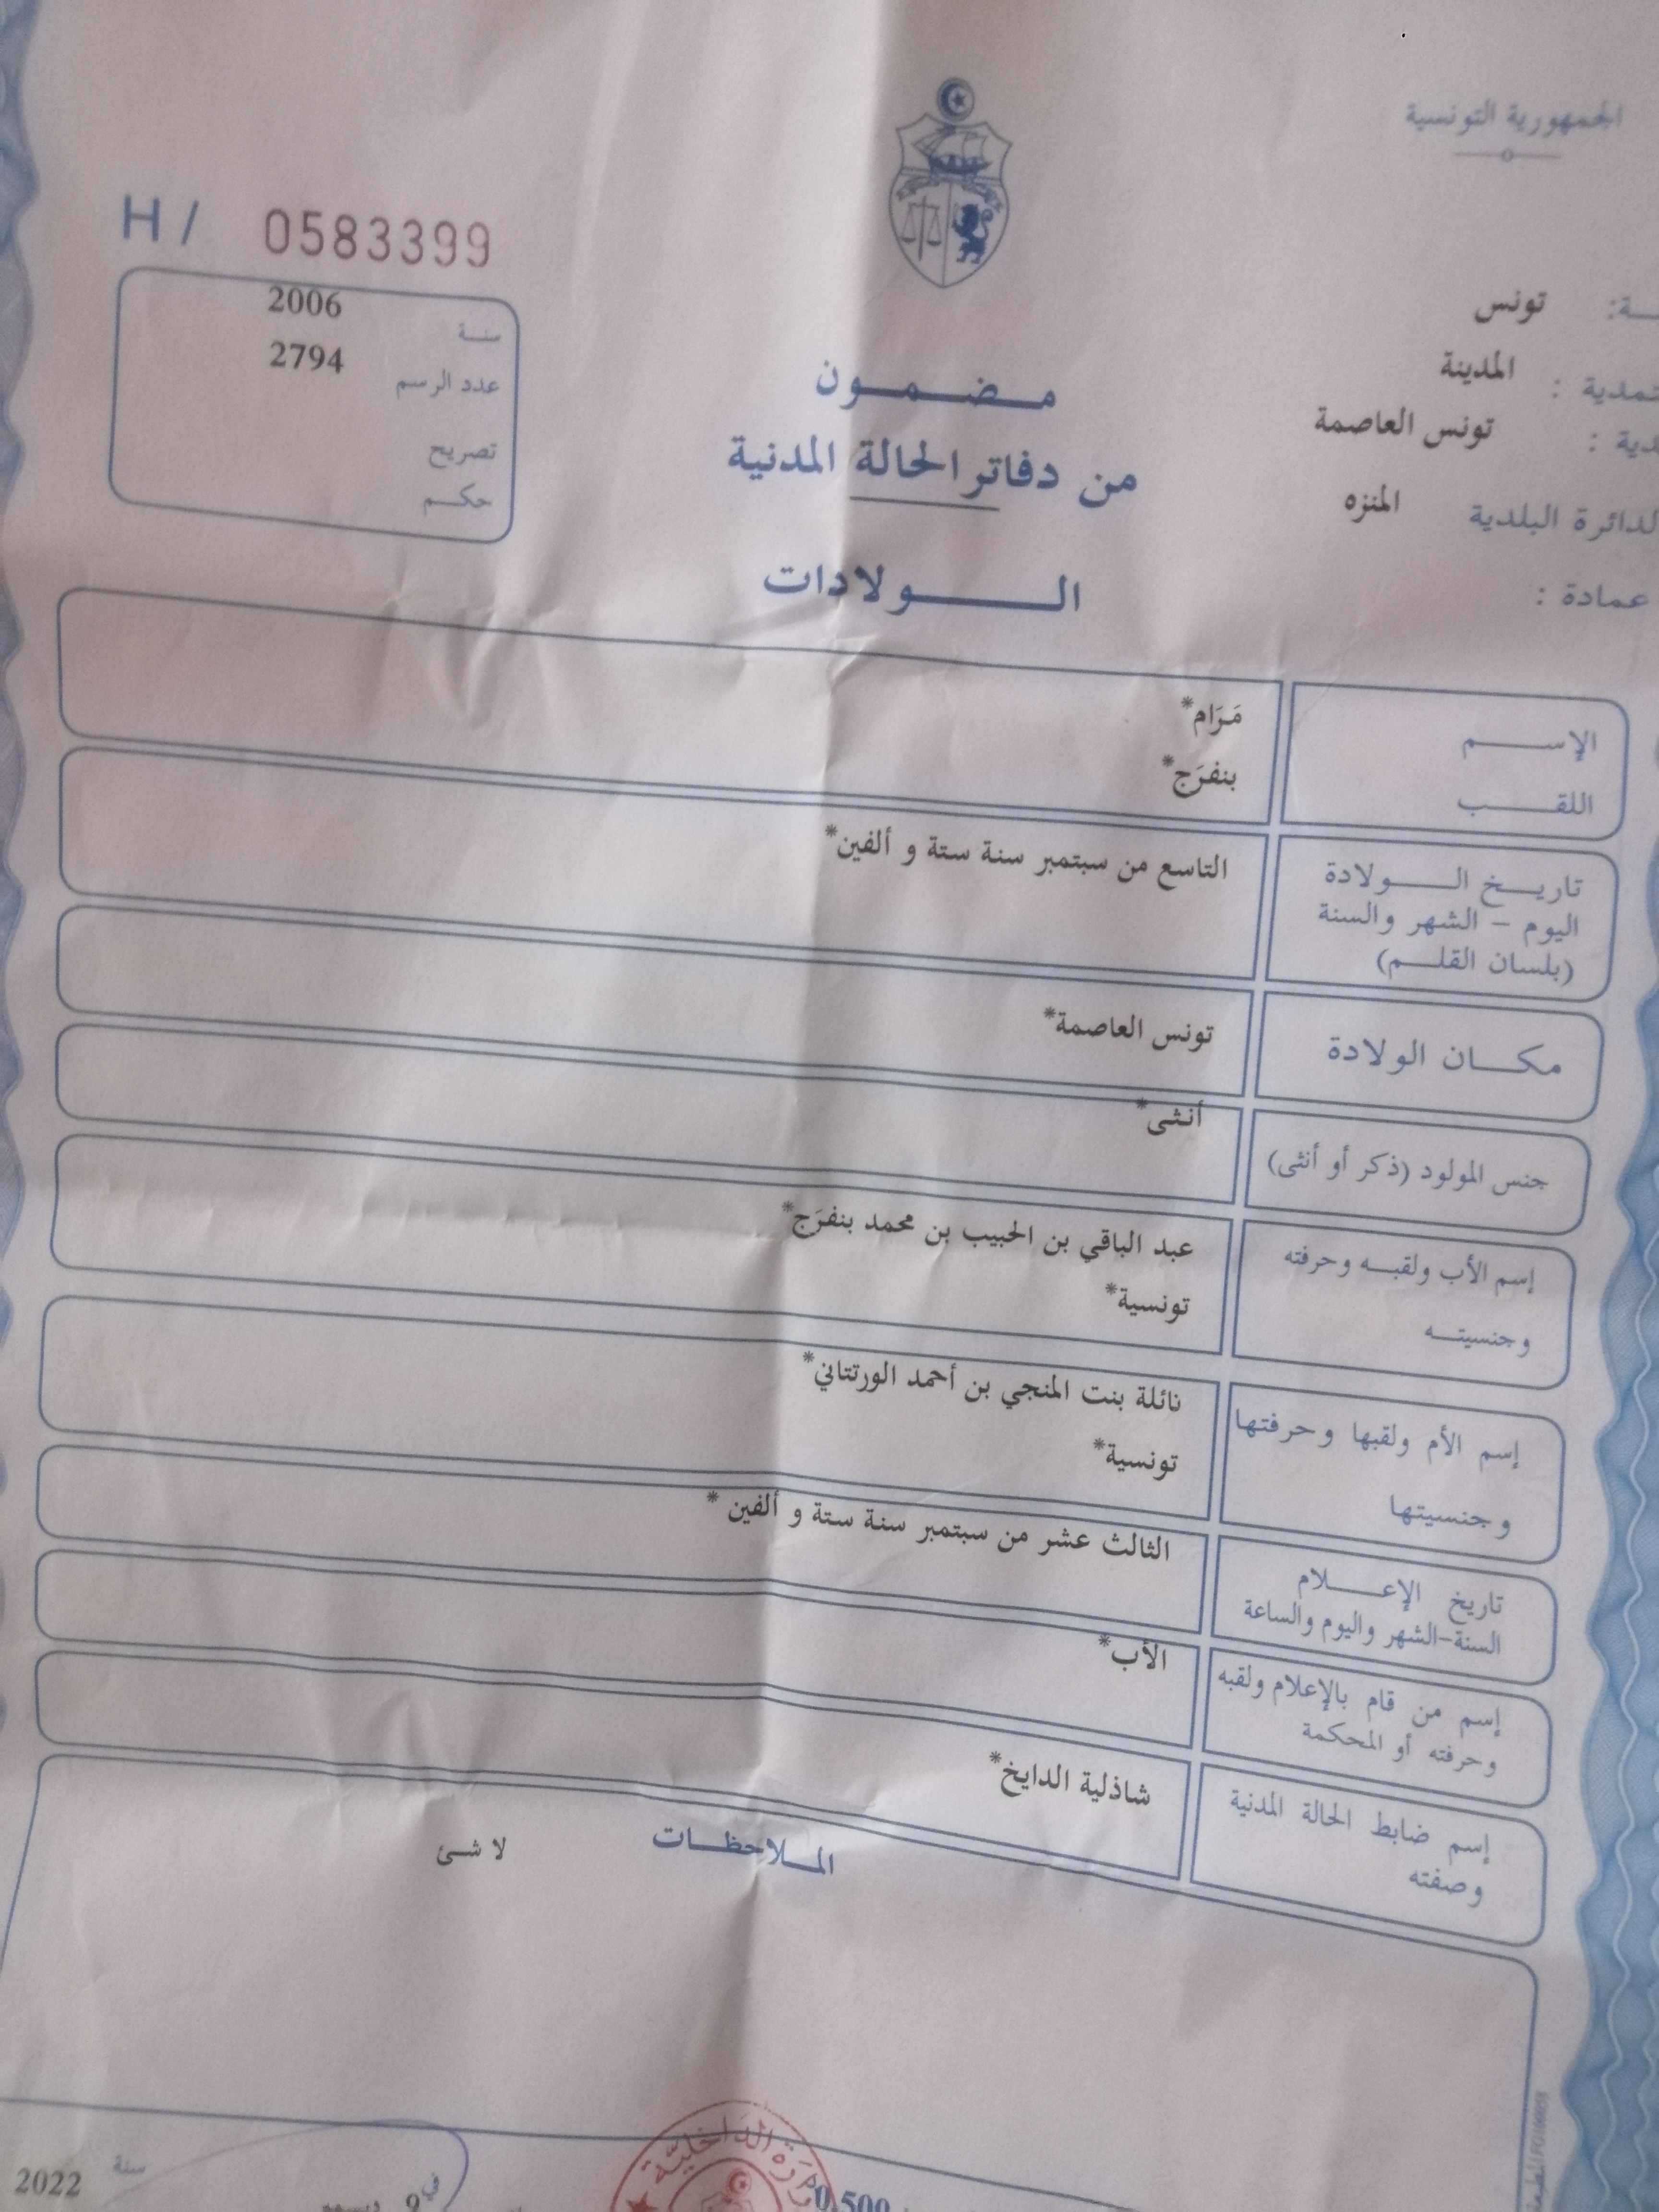 الجمهورية التونسية
H / 0583399
تونس
2006
سنة
المدينة
2794
عدد الرسم
تونس العاصمة
تصريح
الدائرة البلدية المنزه
حكم
عمادة :
مضمون
من دفاتر الحالة المدنية
الولادات
الإسم مَرَام*
اللقب بنفرَج*
تاريخ الولادة التاسع من سبتمبر سنة ستة و ألفين*
اليوم – الشهر والسنة
(بلسان القلم)
مكان الولادة تونس العاصمة*
جنس المولود (ذكر أو أنثى) أنثى*
إسم الأب ولقبه وحرفته عبد الباقي بن الحبيب بن محمد بنفرَج*
وجنسيته تونسية*
إسم الأم ولقبها وحرفتها نائلة بنت المنجي بن أحمد الورتتاني*
وجنسيتها تونسية*
تاريخ الإعلام الثالث عشر من سبتمبر سنة ستة و ألفين *
السنة-الشهر واليوم والساعة
إسم من قام بالإعلام ولقبه الأب*
وحرفته أو المحكمة
إسم ضابط الحالة المدنية شاذلية الدايخ*
وصفته
الملاحظات لا شئ
الداخلية
0,500
في 9 ديسمبر
سنة 2022